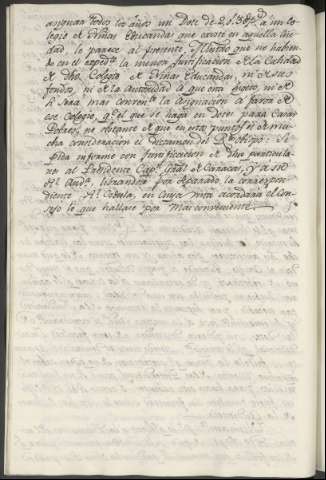 asignar todos los años un Dote de 2 . . a un Co-
legio de Niñas Educandas que existe en aquella Ciu-
dad, le parece al presente Ministro que no habien-
do en el exped.te la menor justificacion de la Calidad
de dho. Colegio de Niñas Educandas, ni de sus
fondos, ni de la Autoridad á que está sujeto, ni de
si sera mas conven.te la asignacion á favor de
ese Colegio, q.e el que se haga en Dotes para Casar
Pobres, no obstante de que en estos puntos es de mu-
cha consideracion el dictamen del R.do Obispo: Se
pida informe con justificacion de dhos particula-
res al Presidente Cap.n Gral. de Caracas, y a su
R.l Aud.a librandose por separado la correspon-
diente R.l Cedula, en cuya vista acordará el Con-
sejo lo que hallare por mas conveniente.